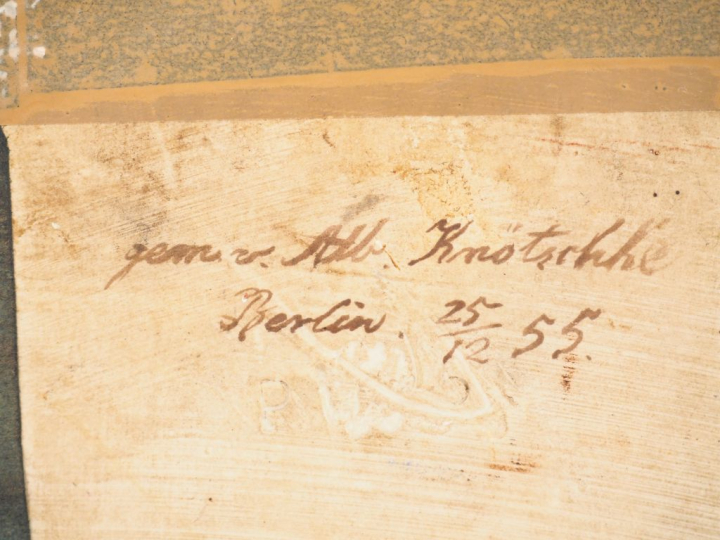 gem. v. Alb. Knötschke
Berlin. 25/12 55.